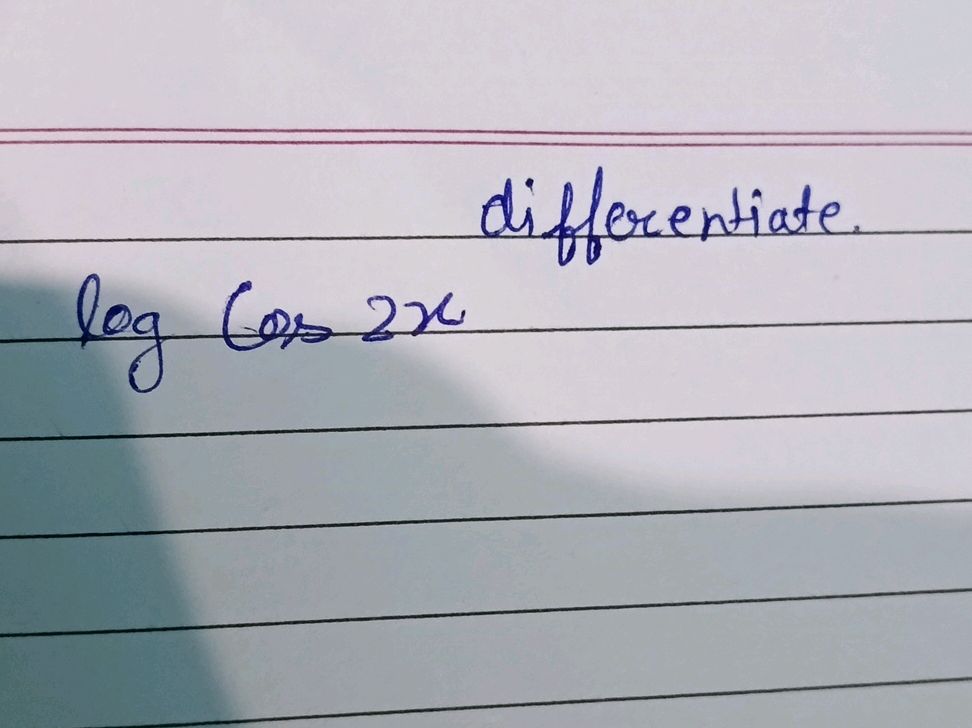 differentiate.
log Cos 2x